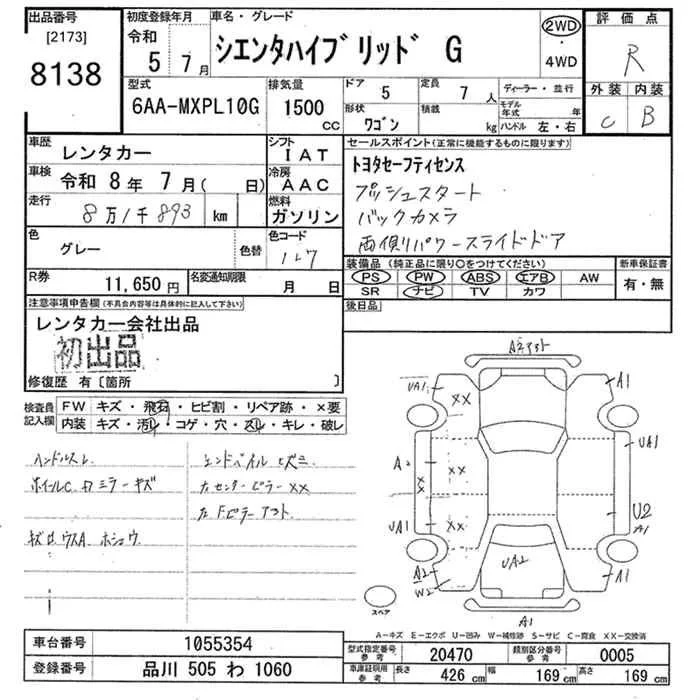 出品番号
[2173]
8138
初度登録年月
令和
5 7月
車名・グレード
シエンタハイブリッド G
2WD
・
4WD
評価点
R
外装 内装
C B
型式
6AA-MXPL10G
排気量
1500
CC
ドア
5
定員
7 人
形状
ワゴン
積載
kg
ディーラー・並行
モデル年式 年
ハンドル 左・右
車歴
レンタカー
シフト
IAT
車検 令和 8年 7月( 日)
冷房
AAC
走行
8万1千893 km
燃料
ガソリン
色
グレー
色替
色コード
1L7
R券
11,650 円
名変通知期限
月 日
セールスポイント(正常に機能するものに限ります)
トヨタセーフティセンス
プッシュスタート
バックカメラ
両側パワースライドドア
装備品(純正品に限り〇をつけてください)
PS PW ABS エアB AW
SR ナビ TV カワ
新車保証書
有・無
後日品
注意事項申告欄(不具合内容等は具体的に記入して下さい)
レンタカー会社出品
初出品
修復歴 有〔箇所 〕
検査員
記入欄
FW キズ・飛石・ヒビ割・リペア跡・×要
内装 キズ・汚レ・コゲ・穴・スレ・キレ・破レ
ハンドルスレ
ホイールC ロミラーキズ
エンドパイルヒズミ
カセンターピラーXX
カFピラーアト
UA1
XX
A1
UA1
A2
XX
XX
U2
A1
UA1
XX
UA2
A2
W2
A1
A1
スペア
A-キズ E-エクボ U-凹み W-補修跡 S-サビ C-腐食 XX-交換済
車台番号
1055354
登録番号
品川 505 わ 1060
型式指定番号
参考
20470
類別区分番号
参考
0005
車庫証明用
参考
長さ
426 cm
幅
169 cm
高さ
169 cm